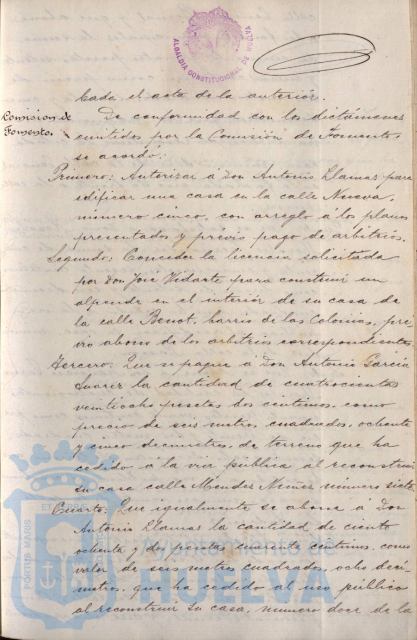 ALCALDIA CONSTITUCIONAL DE HUELVA
bada el acta de la anterior.
Comision de
Fomento.
De conformidad con los dictámenes
emitidos por la Comisión de Fomento,
se acordó:
Primero: Autorizar á Don Antonio Llamas para
edificar una casa en la calle Nueva,
número cinco, con arreglo a los planos
presentados y prévio pago de arbitrios.
Segundo: Conceder la licencia solicitada
por Don José Vidarte para construir un
alpende en el interior de su casa de
la calle Benot, barrio de las Colonias, pré
vio abono de los arbitrios correspondientes.
Tercero: Que se pague á Don Antonio García
Suarez la cantidad de cuatrocientas
veintiocho pesetas dos céntimos, como
precio de seis metros cuadrados, ochenta
y cinco decimetros, de terreno que ha
cedido a la via pública al reconstruir
su casa calle Mendez Nuñez número siete
Cuarto: Que igualmente se abone á Don
Antonio Llamas la cantidad de ciento
ochenta y dos pesetas cuarenta céntimos, como
valor de seis metros cuadrados, ocho deci-
metros, que ha cedido al uso público
al reconstruir su casa, numero doce de la
Ayuntamiento de
HUELVA
PORTUS MARIS